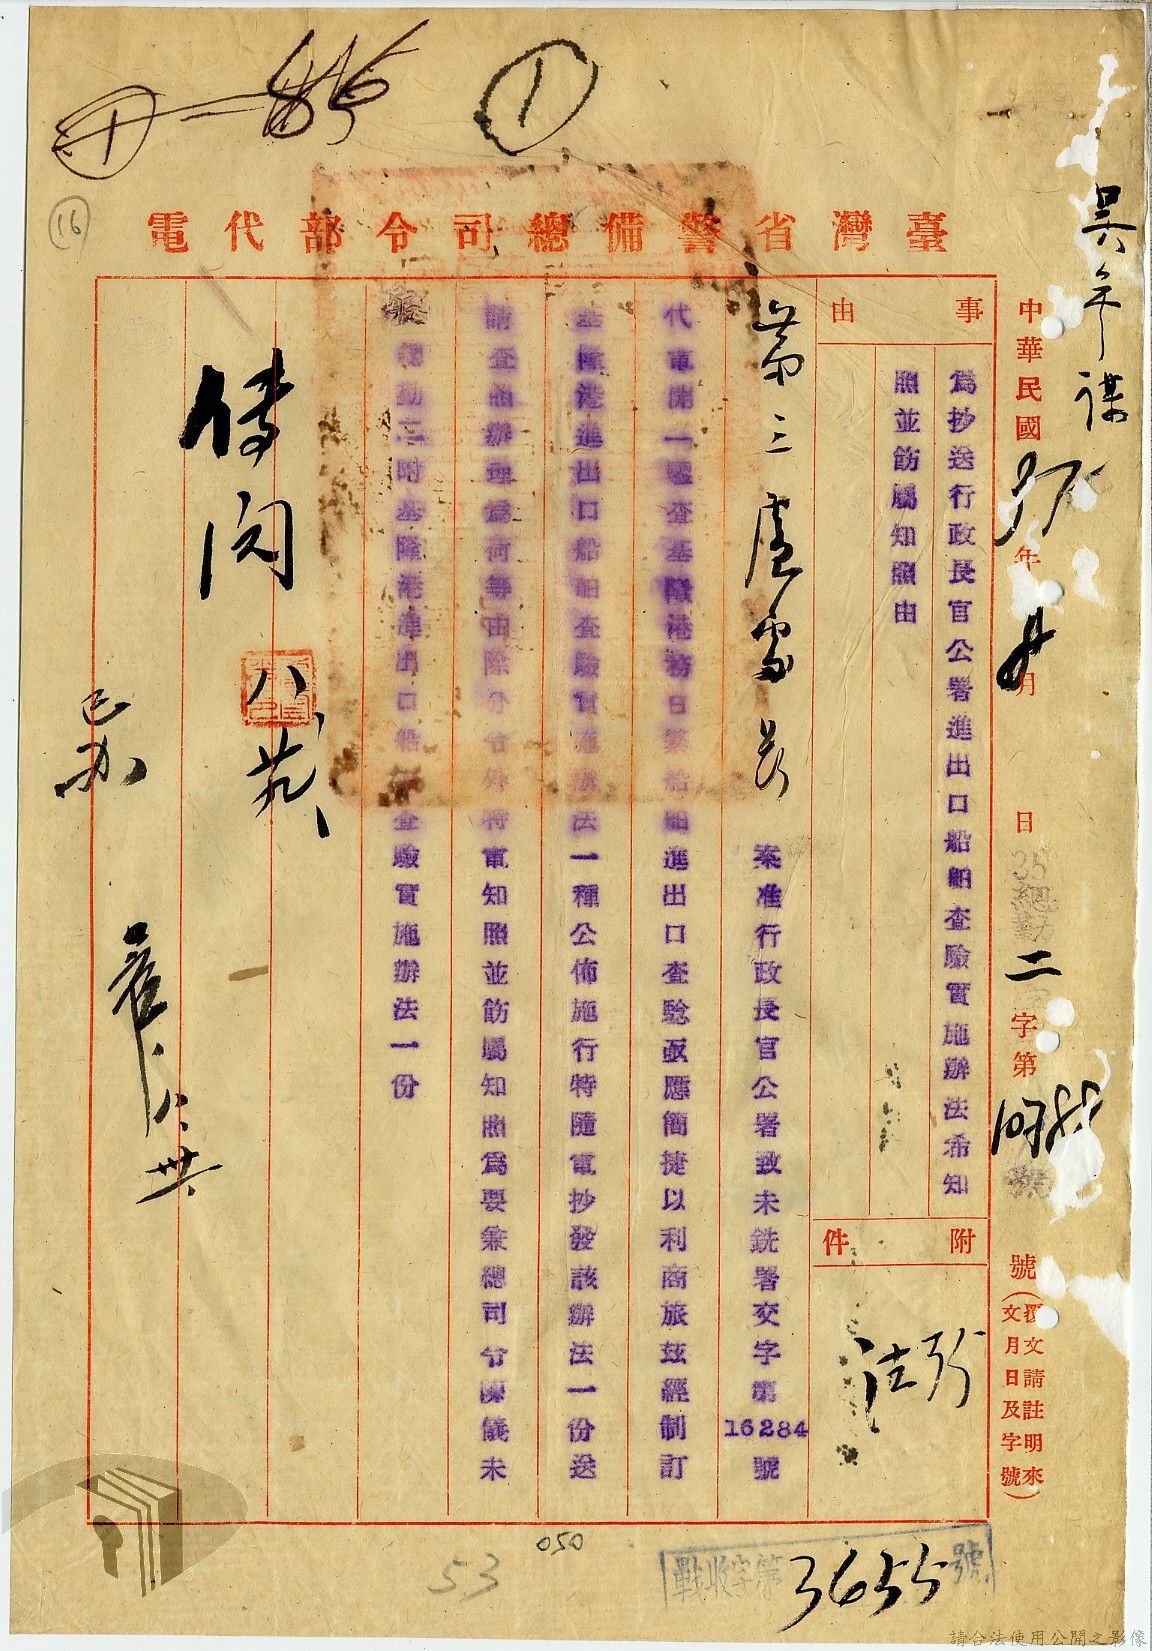 ①
16
臺灣省警備總司令部代電
中華民國 年 月 日
35總勤二字第 號
號(覆文請註明來文月日及字號)
事由
為抄送行政長官公署進出口船舶查驗實施辦法希知
照並飭屬知照由
附件
案准行政長官公署致未銑署交字第16284號
代電開一驗查基隆港務日繁船舶進出口查驗亟應簡捷以利商旅茲經制訂
基隆港進出口船舶查驗實施辦法一種公佈施行特隨電抄發該辦法一份送
請查照辦理為荷等由除分令外特電知照並飭屬知照為要兼總司令陳儀未
總勤二附基隆港進出口船舶查驗實施辦法一份
傳閱
戰收字第3655號
050
53
請合法使用公開之影像